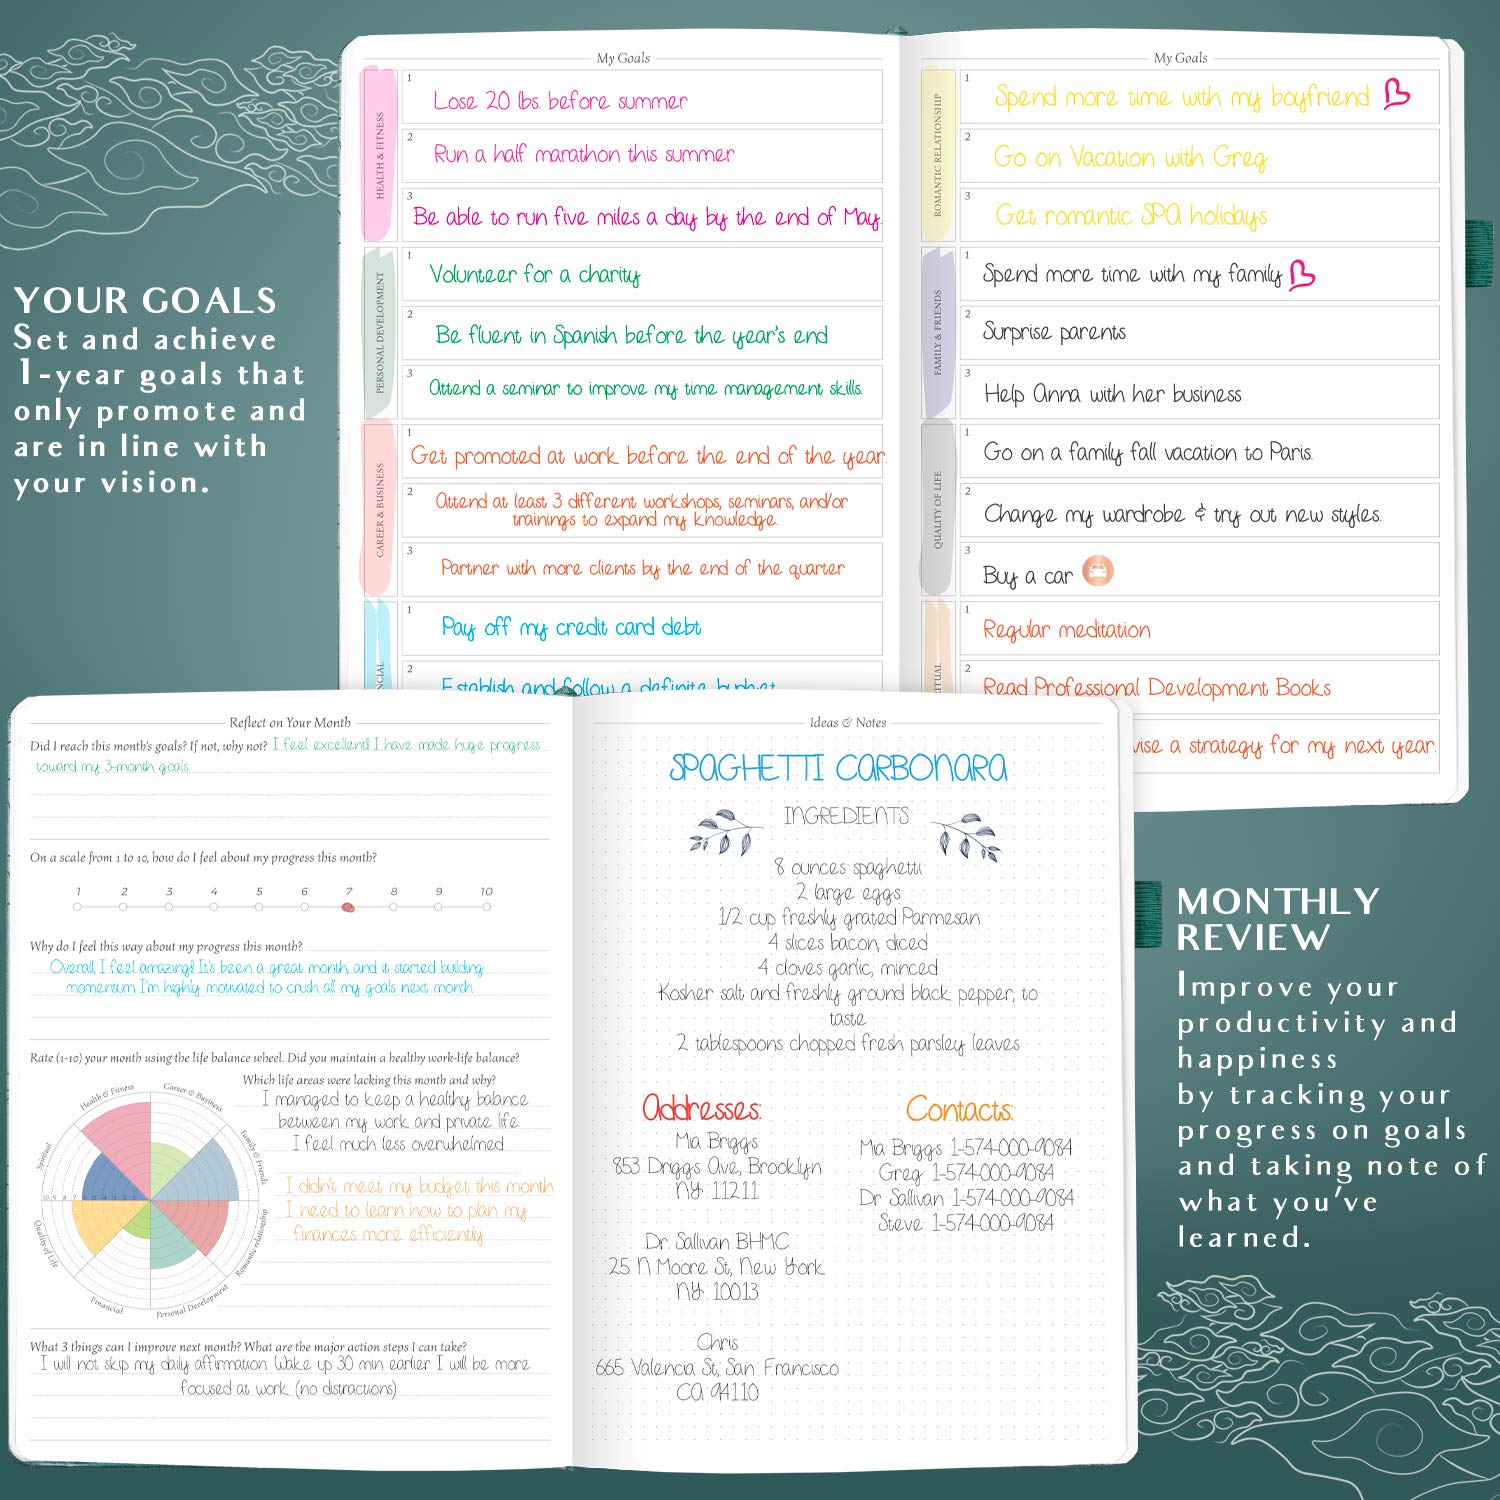 YOUR GOALS
Set and achieve
1-year goals that
only promote and
are in line with
your vision.
My Goals
HEALTH & FITNESS
1
Lose 20 lbs. before summer
2
Run a half marathon this summer
3
Be able to run five miles a day by the end of May.
PERSONAL DEVELOPMENT
1
Volunteer for a charity
2
Be fluent in Spanish before the year's end
3
Attend a seminar to improve my time management skills.
CAREER & BUSINESS
1
Get promoted at work before the end of the year.
2
Attend at least 3 different workshops, seminars, and/or
trainings to expand my knowledge.
3
Partner with more clients by the end of the quarter
NCIAL
1
Pay off my credit card debt
2
Establish and follow a definite budget
My Goals
ROMANTIC RELATIONSHIP
1
Spend more time with my boyfriend
2
Go on Vacation with Greg
3
Get romantic SPA holidays
FAMILY & FRIENDS
1
Spend more time with my family
2
Surprise parents
3
Help Anna with her business
QUALITY OF LIFE
1
Go on a family fall vacation to Paris.
2
Change my wardrobe & try out new styles.
3
Buy a car
RITUAL
1
Regular meditation
2
Read Professional Development Books
vise a strategy for my next year.
Reflect on Your Month
Did I reach this month's goals? If not, why not? I feel excellent! I have made huge progress
toward my 3-month goals
On a scale from 1 to 10, how do I feel about my progress this month?
1 2 3 4 5 6 7 8 9 10
Why do I feel this way about my progress this month?
Overall, I feel amazing! It's been a great month, and it started building
momentum. I'm highly motivated to crush all my goals next month.
Rate (1-10) your month using the life balance wheel. Did you maintain a healthy work-life balance?
Health & Fitness
Career & Business
Family & Friends
Romantic relationship
Personal Development
Financial
Quality of Life
Spiritual
10 9 8 7 6 5 4 3 2 1
Which life areas were lacking this month and why?
I managed to keep a healthy balance
between my work and private life.
I feel much less overwhelmed
I didn't meet my budget this month.
I need to learn how to plan my
finances more efficiently.
What 3 things can I improve next month? What are the major action steps I can take?
I will not skip my daily affirmation. Wake up 30 min earlier. I will be more
focused at work (no distractions)
Ideas & Notes
SPAGHETTI CARBONARA
INGREDIENTS
8 ounces spaghetti
2 large eggs
1/2 cup freshly grated Parmesan
4 slices bacon, diced
4 cloves garlic, minced
Kosher salt and freshly ground black pepper, to
taste
2 tablespoons chopped fresh parsley leaves
Addresses:
Mia Briggs
853 Driggs Ave, Brooklyn
NY 11211
Dr. Sallivan BHMC
25 N Moore St, New York
NY 10013
Chris
665 Valencia St, San Francisco
CA 94110
Contacts:
Mia Briggs 1-574-000-9084
Greg 1-574-000-9084
Dr Sallivan 1-574-000-9084
Steve 1-574-000-9084
MONTHLY
REVIEW
Improve your
productivity and
happiness
by tracking your
progress on goals
and taking note of
what you've
learned.